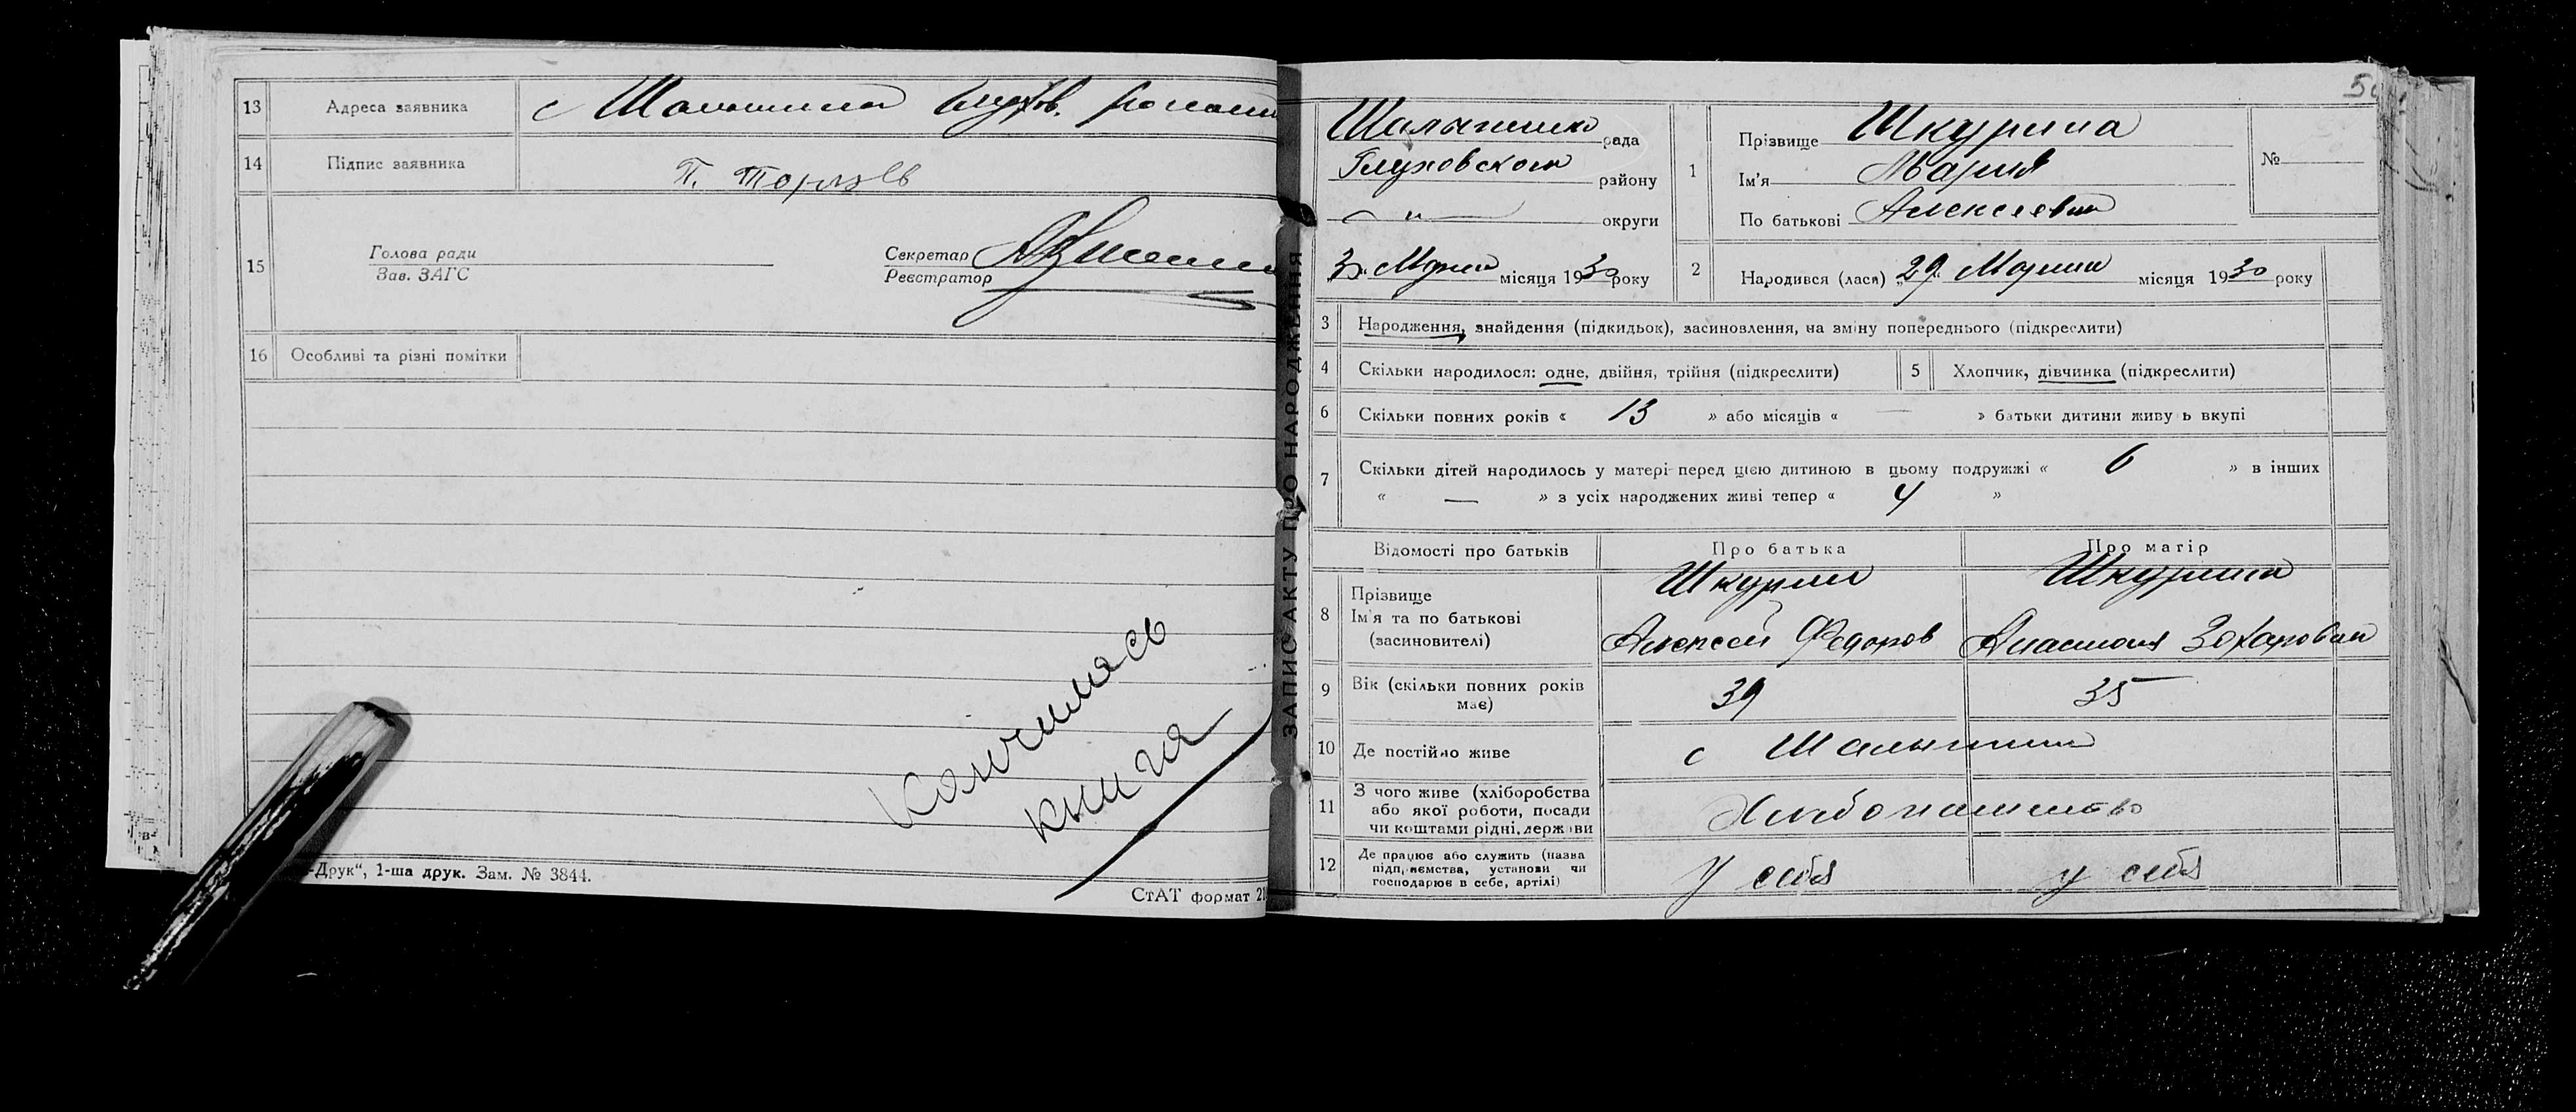 13 Адреса заявника с Шалыгина Глухов. района
14 Підпис заявника П.
15 Голова ради Зав. ЗАГС Секретар Реєстратор
16 Особливі та різні помітки
Кончилась
книга
-Друк“, 1-ша друк. Зам. № 3844.
СтАТ формат
ЗАПИС АКТУ ПРО НАРОДЖЕННЯ
Шалыгинск рада
Глуховского району
— " — округи
30 Марта місяця 1930 року
1 Прізвище Шкурина
Ім'я Мария
По батькові Алексеевна
№
2 Народився (лася) „29“ Марта місяця 1930 року
3 Народження, знайдення (підкидьок), засиновлення, на зміну попереднього (підкреслити)
4 Скільки народилося: одне, двійня, трійня (підкреслити) 5 Хлопчик, дівчинка (підкреслити)
6 Скільки повних років « 13 » або місяців « — » батьки дитини живу ь вкупі
7 Скільки дітей народилось у матері перед цією дитиною в цьому подружжі « 6 » в інших
« — » з усіх народжених живі тепер « 4 »
Відомості про батьків Про батька Про матір
8 Прізвище Шкурин Шкурина
Ім'я та по батькові
(засиновителі) Алексей Федоров Анастасия Захаровна
9 Вік (скільки повних років має) 39 35
10 Де постійно живе с Шалыгина
11 З чого живе (хліборобства
або якої роботи, посади
чи коштами рідні, держави Хлебопашество
12 Де працює або служить (назва
підприємства, установи чи
господарює в себе, артілі) У себя у себя